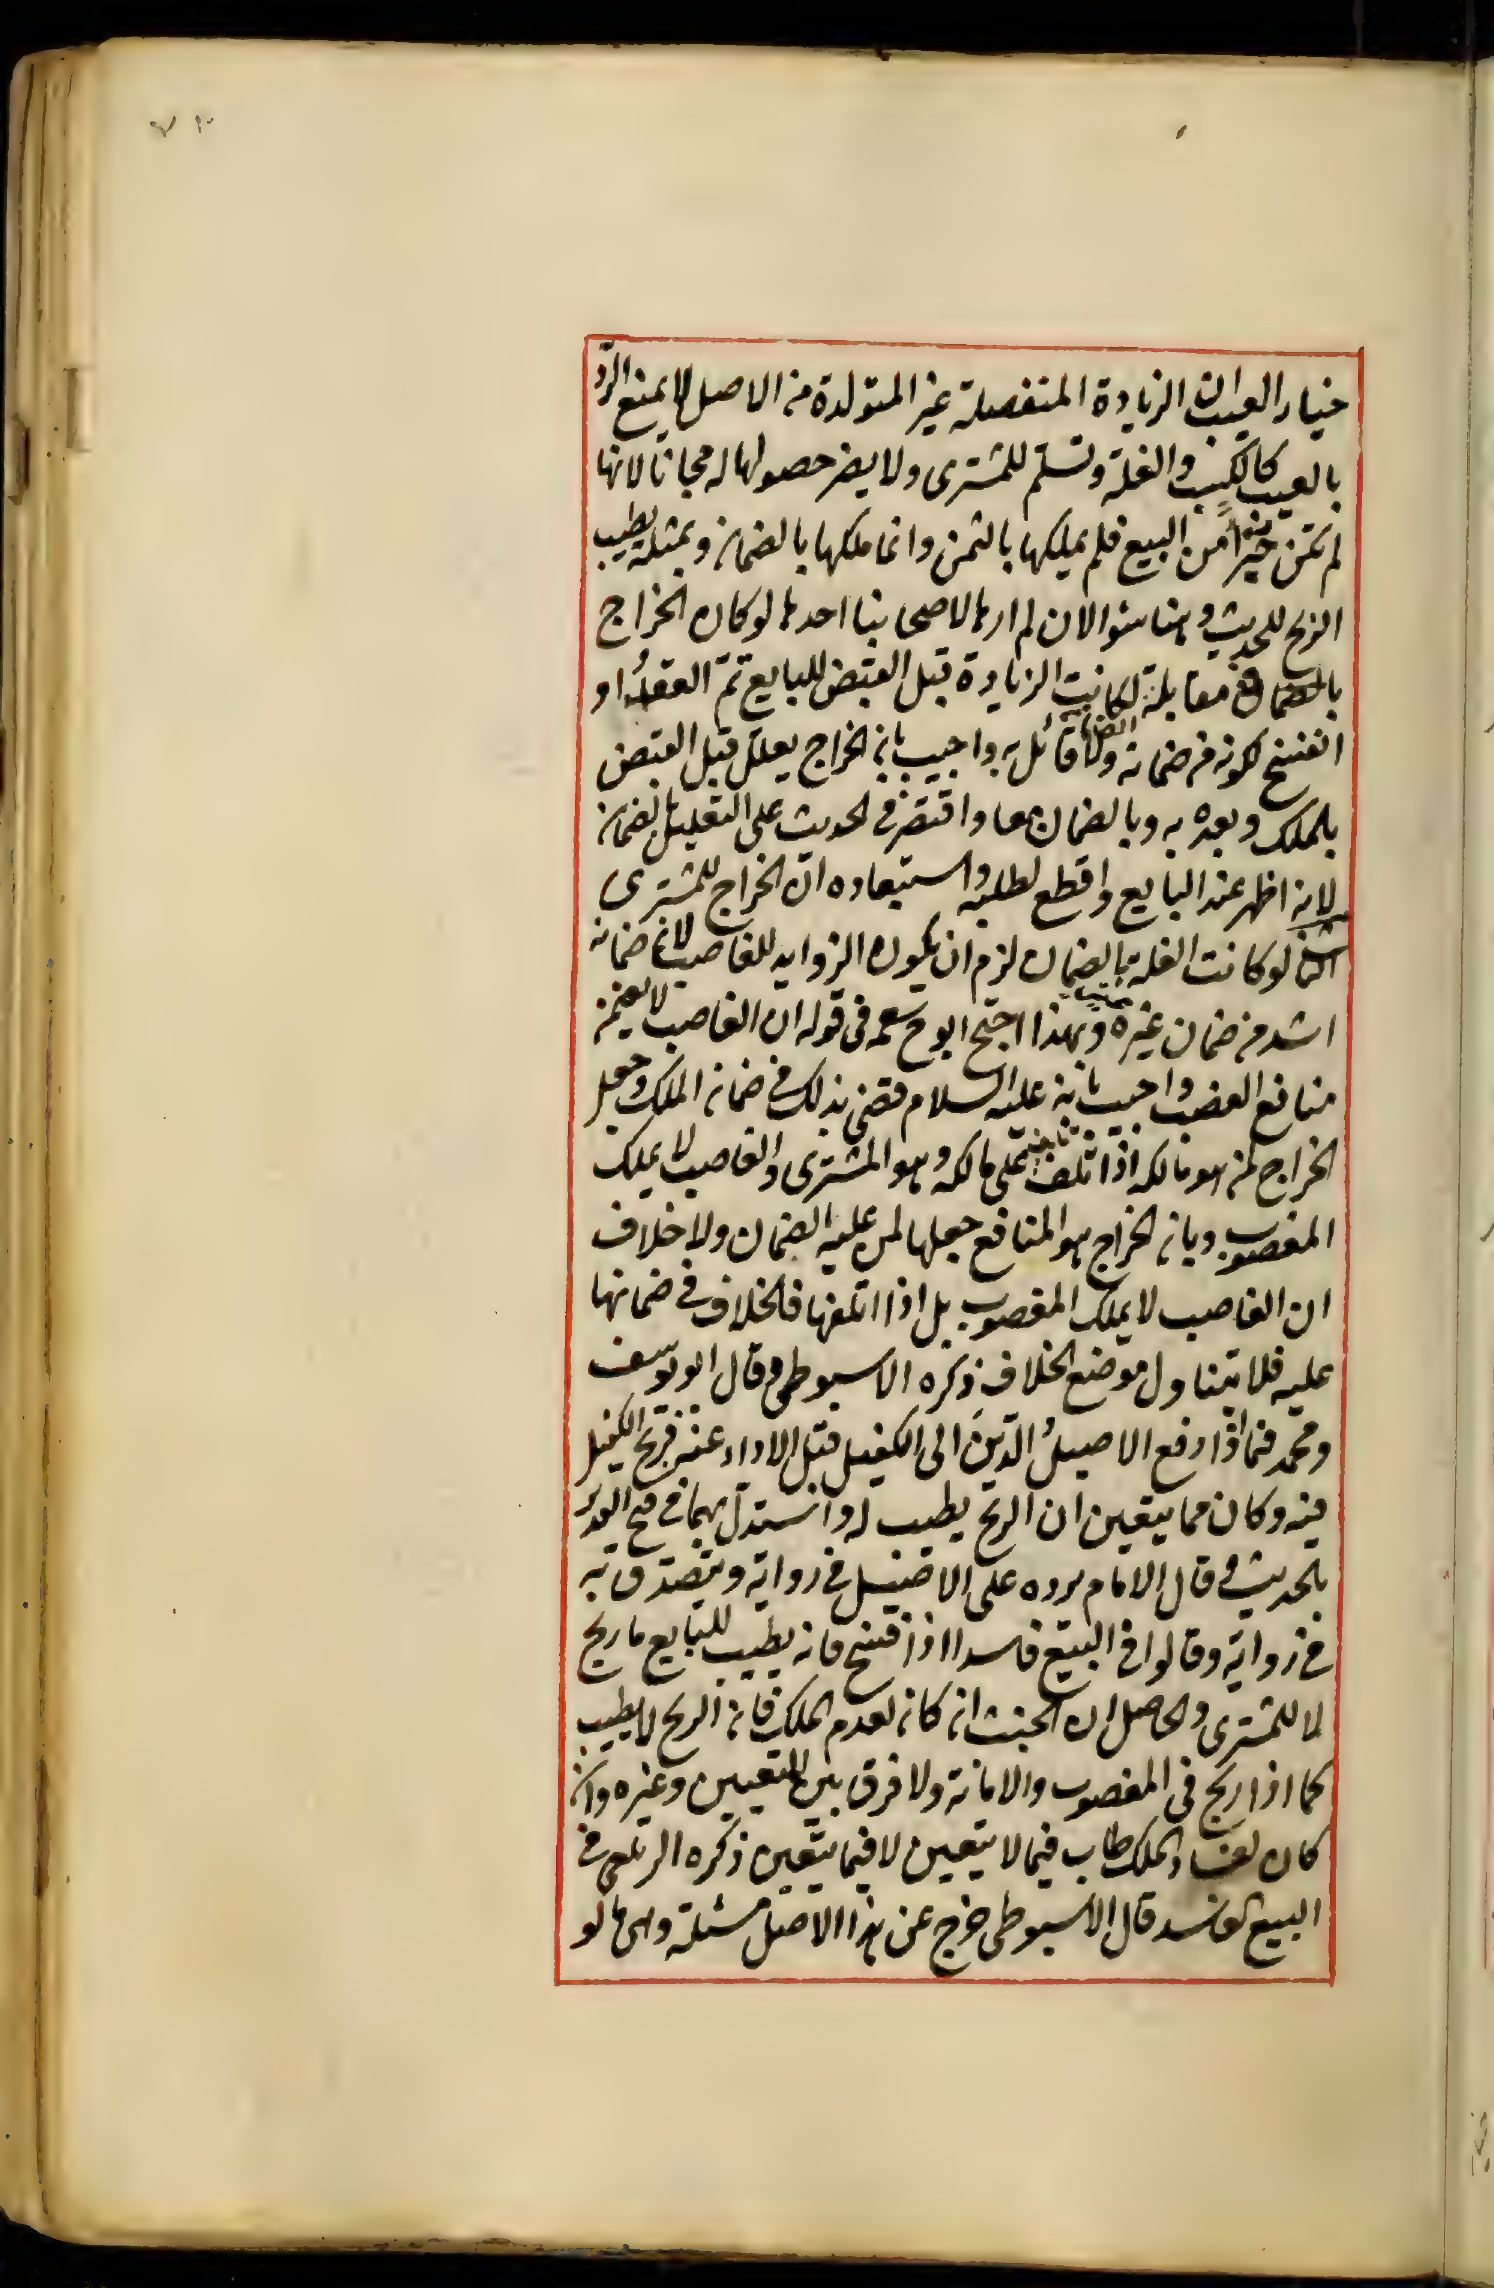 خيار العيب ان الزيادة المنفصلة غير المتولدة من الاصل لا يمنع الرد
بالعيب كالكسب والغلة وتسلم للمشترى ولا يضر حصولها له مجانا لانها
لم تكن جزأ من البيع فلم يملكها بالثمن وانما ملكها بالضمان وبمثله يطيب
الربح للحديث وهنا سئوالان لم ارهما لاصحابنا احدهما لو كان الخراج
بالضمان في مقابلة لكانت الزيادة قبل القبض للبايع تم العقد او
انفسخ لكونه من ضمانه ولا قائل به واجيب بان الخراج يعلل قبل القبض
بالملك وبعده به وبالضمان معا واقتصر في الحديث على التعليل بالضمان
لانه اظهر عند البايع واقطع لطلبه واستبعاده ان الخراج للمشترى
الثانى لو كانت الغلة بالضمان لزم ان يكون الزوايد للغاصب لان ضمانه
اشد من ضمان غيره وبهذا احتج ابو ح في قوله ان الغاصب لا يضمن
منافع الغصب واجيب بانه عليه السلام قضى بذلك في ضمان الملك وجعل
الخراج لمن هو مالكه اذا تلف على مالكه وهو المشترى والغاصب لا يملك
المغصوب وبان الخراج هو المنافع جعلها لمن عليه الضمان ولا خلاف
ان الغاصب لا يملك المغصوب بل اذا اتلفها فالخلاف في ضمانها
عليه فلا يتناول موضع الخلاف ذكره الاسيوطى وقال ابو يوسف
ومحمد فيما اذا دفع الاصيل الدين الى الكفيل قبل الاداء عنه فربح الكفيل
فيه وكان مما يتعين ان الربح يطيب له واستدل بهما في فتح القدير
بالحديث وقال الامام يرده على الاصيل في رواية ويتصدق به
في رواية وقالوا في البيع فاسدا اذا فسخ فانه يطيب للبايع ما ربح
لا للمشترى والحاصل ان الخبث ان كان لعدم الملك فان الربح لا يطيب
كما اذا ربح في المغصوب والامانة ولا فرق بين المتعين وغيره وان
كان لفساد الملك طاب فيما لا يتعين لا فيما يتعين ذكره الزيلعى في
البيع الفاسد قال الاسيوطى خرج عن هذا الاصل مسئلة وهى ما لو